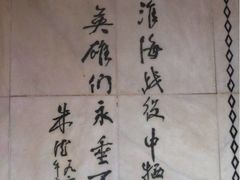 淮海战役中牺
英雄們永垂
朱德